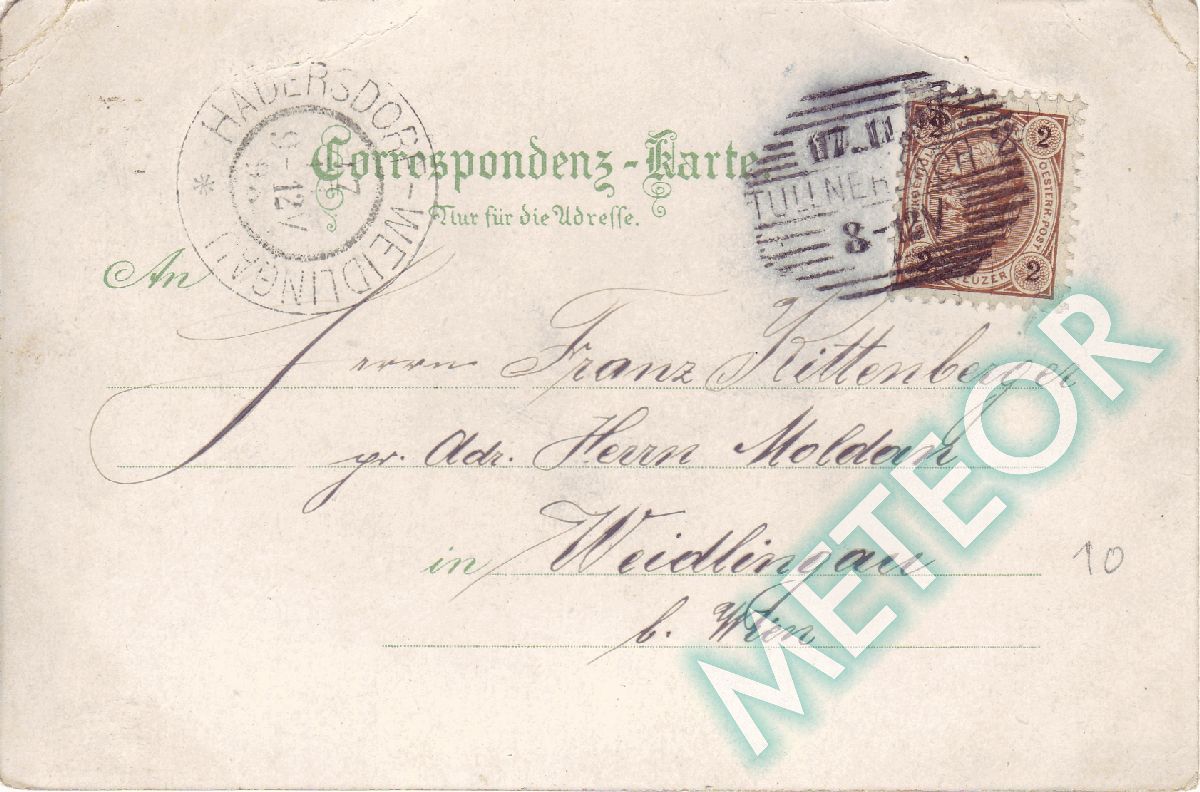 HADERSDORF-WEIDLINGAU *
9-12V
Correspondenz-Karte.
Nur für die Adresse.
TULLNERBACH 2
8-12V
2
2
2
OESTERR. POST
KREUZER
An
Herrn Franz Kittenberger
pr. Adr. Herrn Moldan
in Weidlingau
b. Wien
10
METEOR